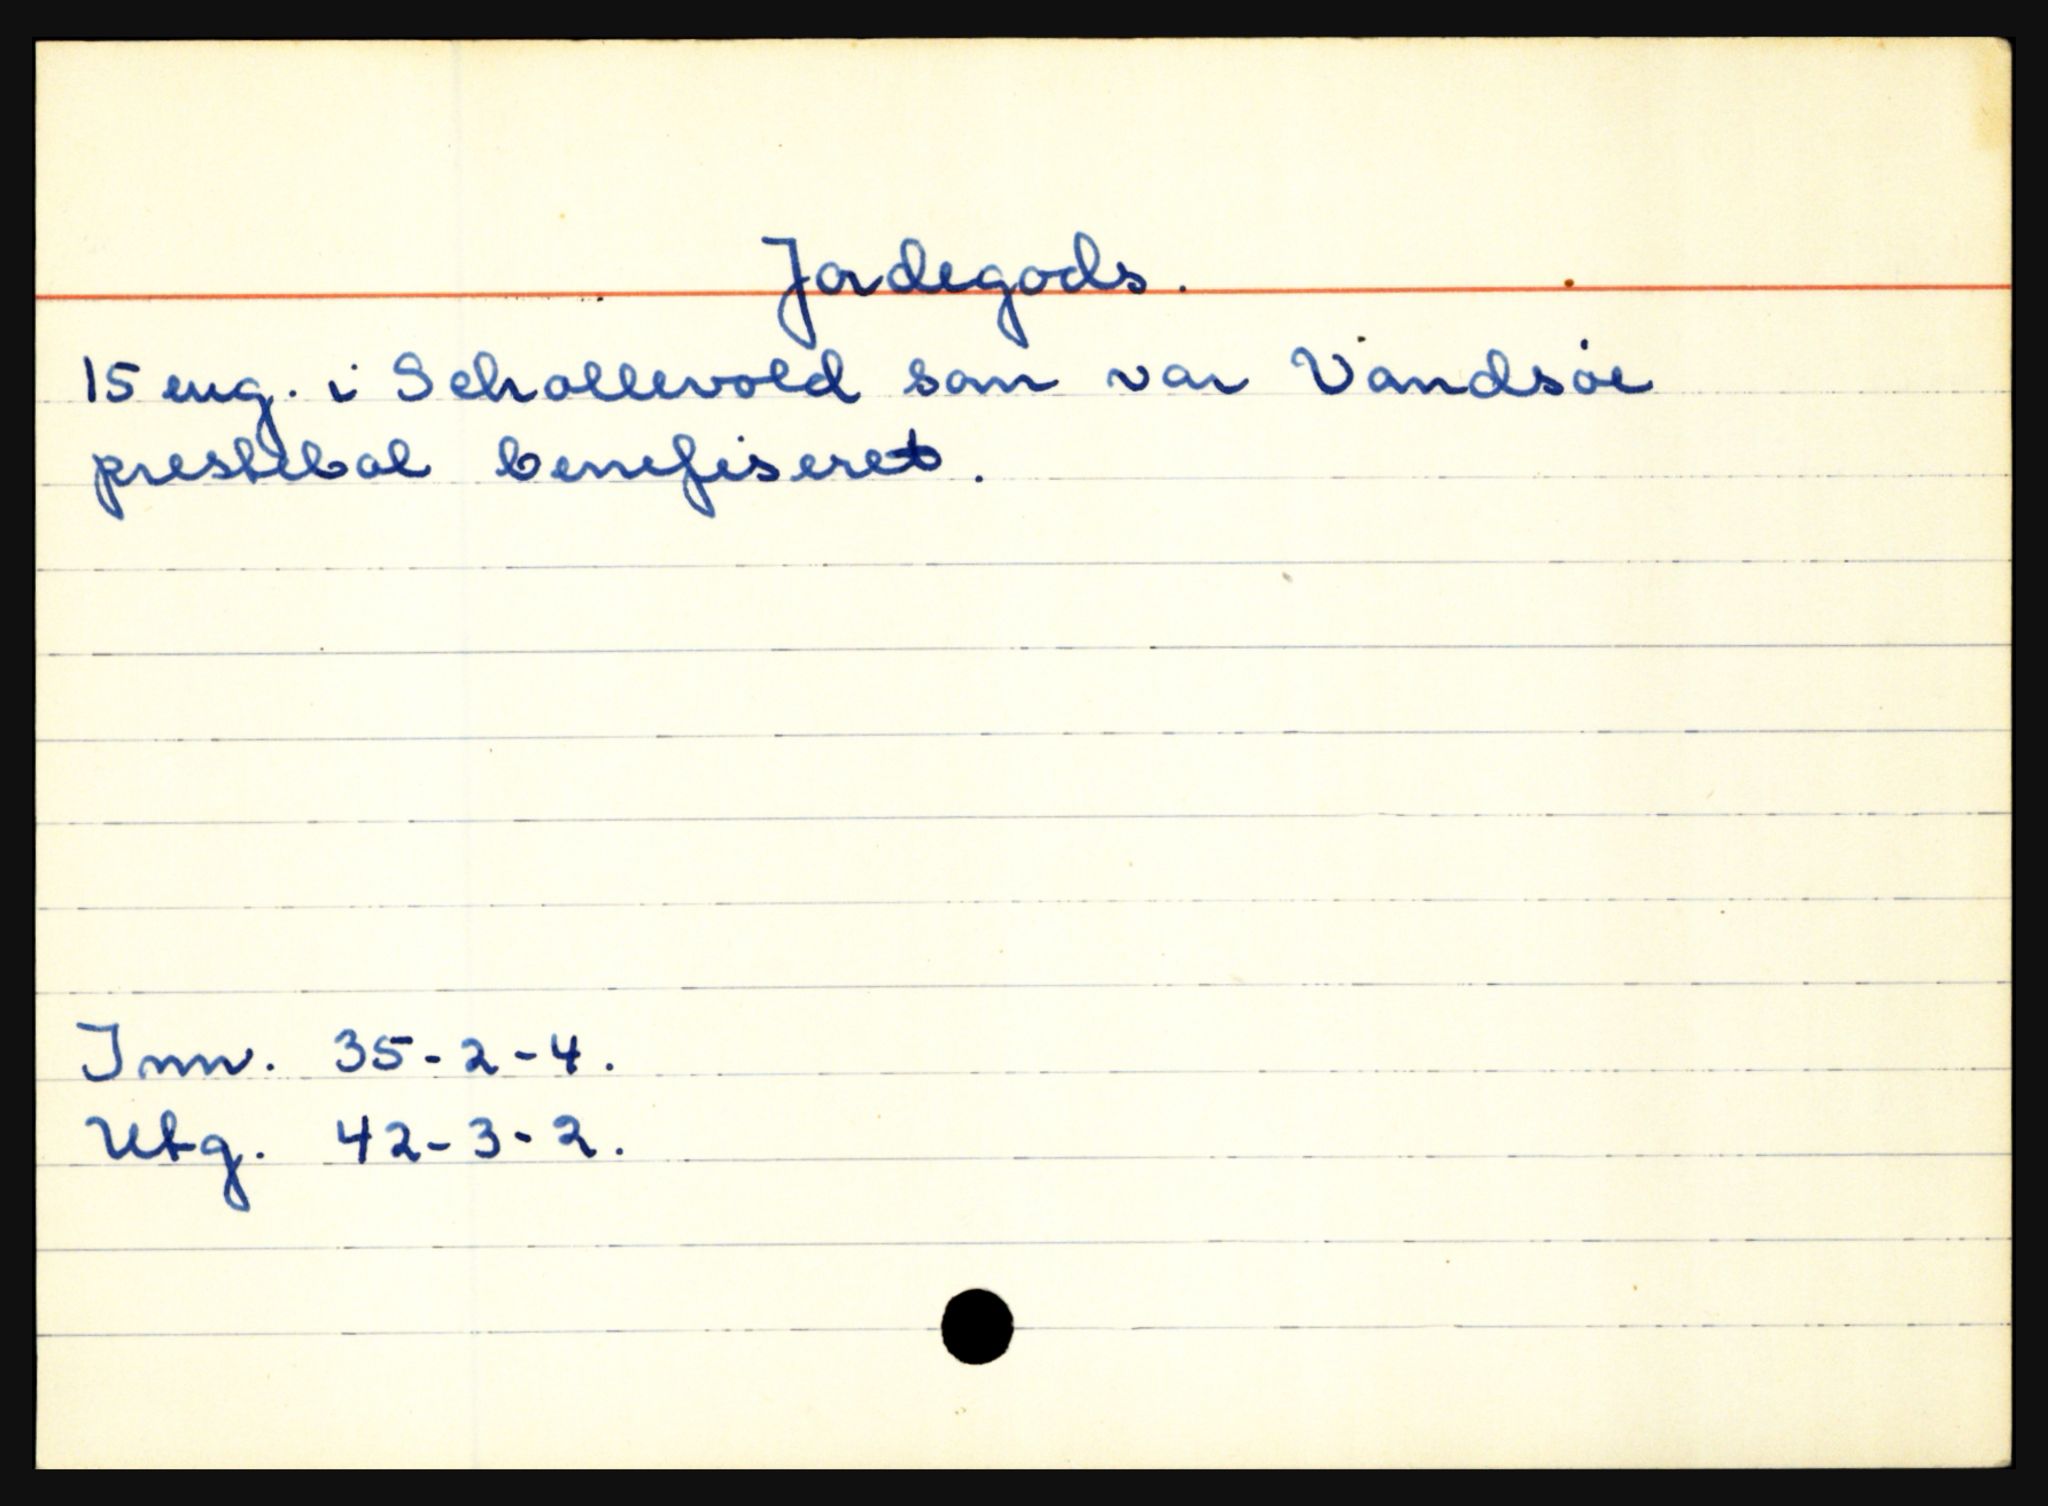 Jordegods.
15 eng. i Schollevold som var Vandsöe
prestebol benefiseret.
Inn. 35-2-4.
Utg. 42-3-2.